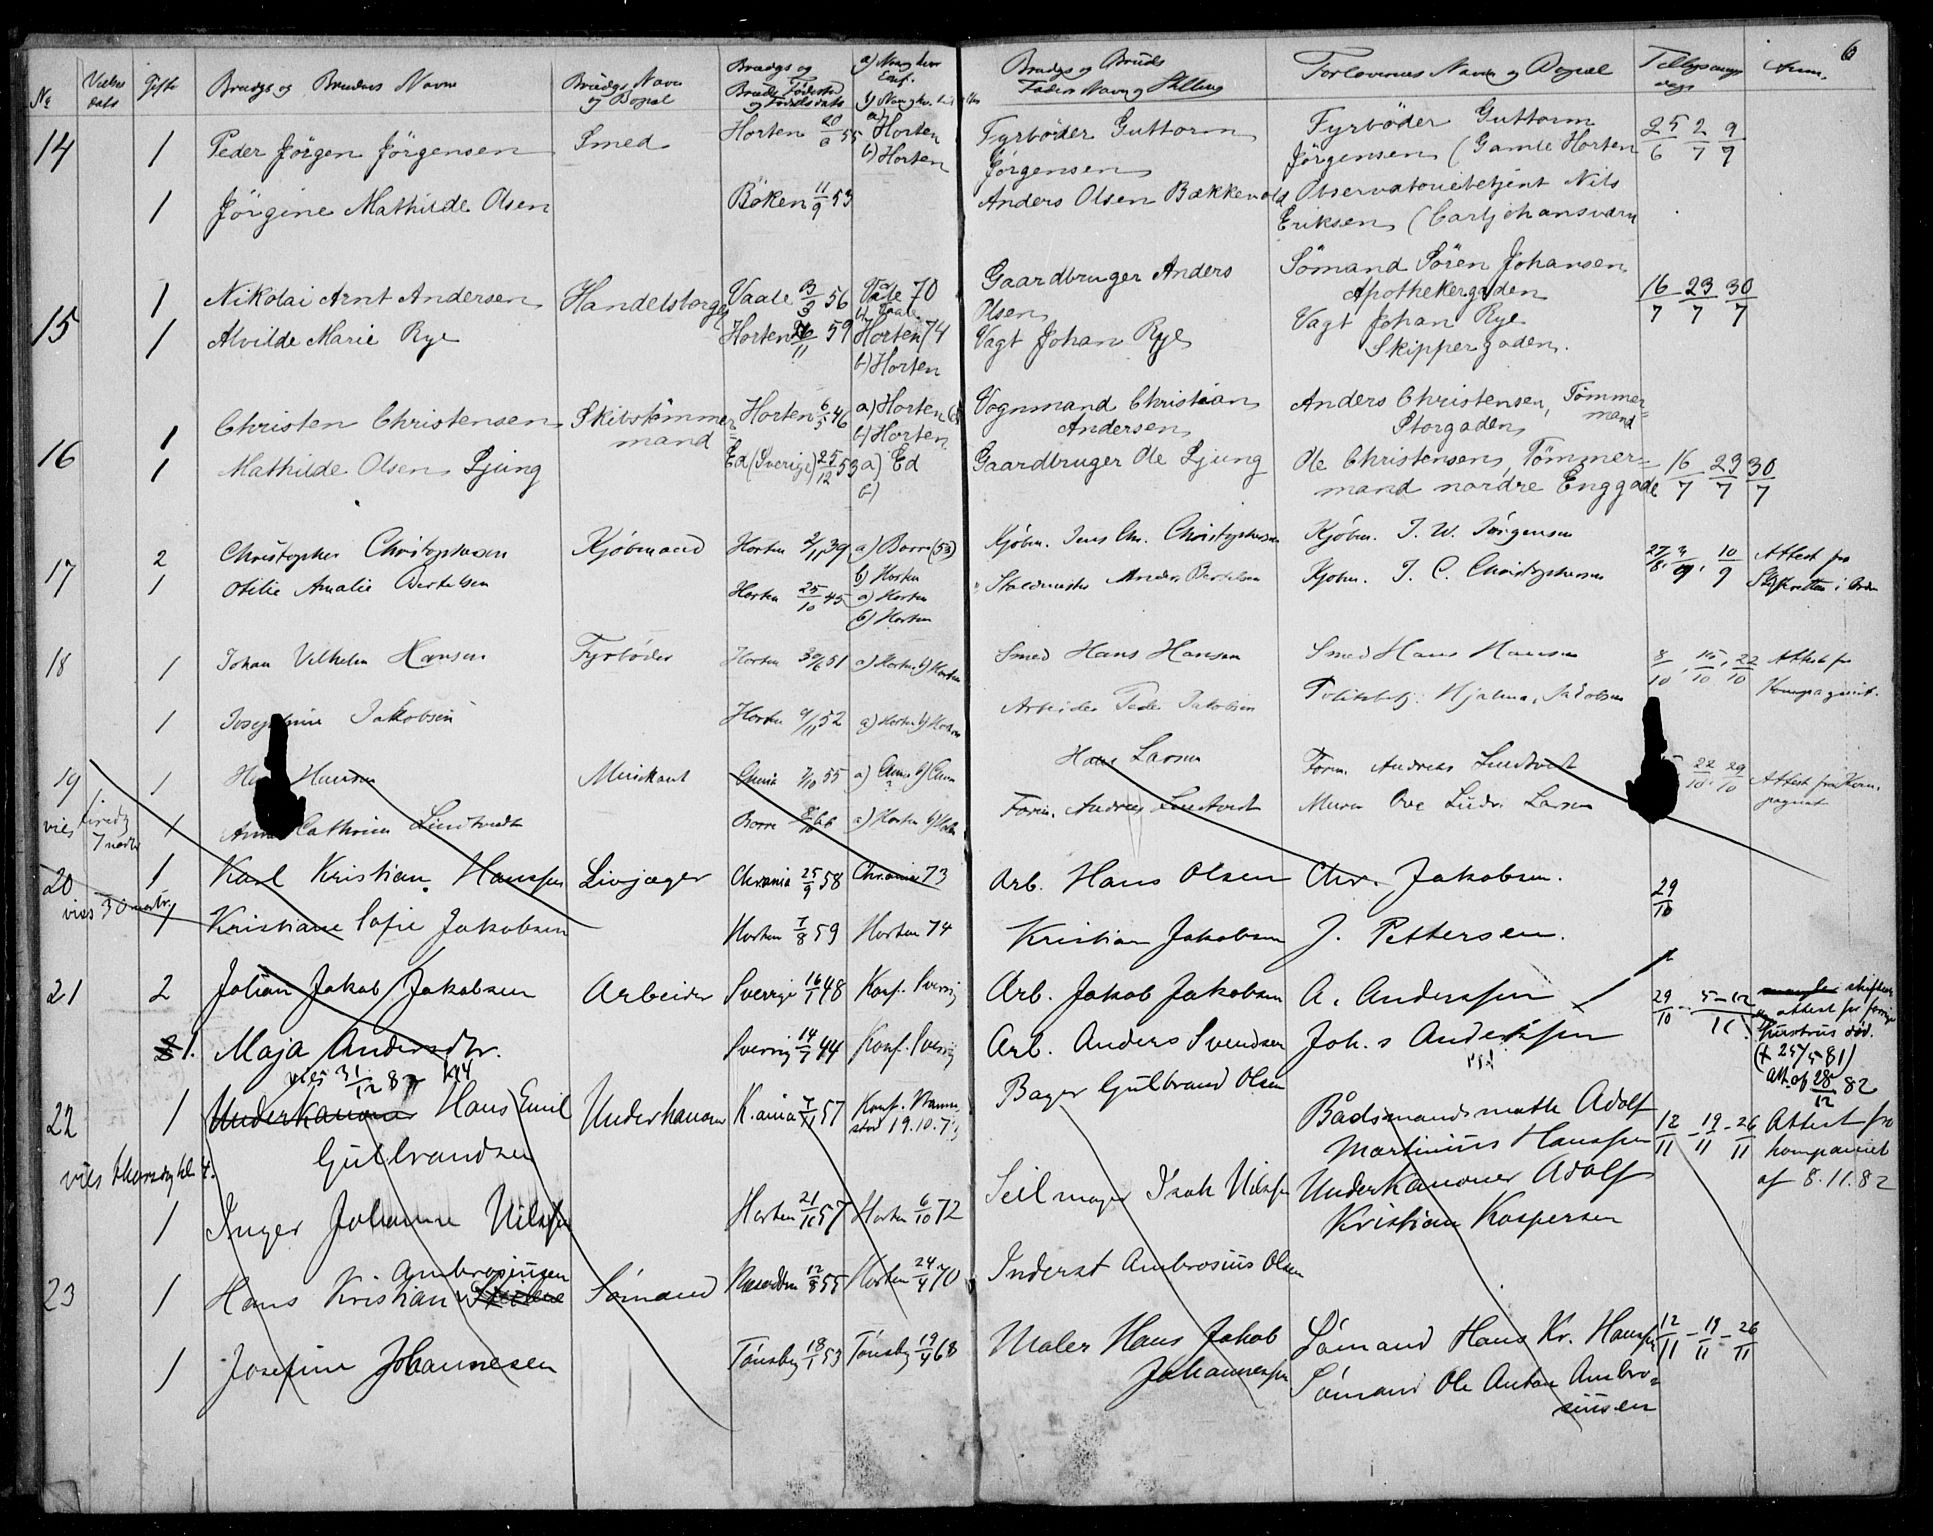 6
No Vielses dato Gifte Brudgs og Brudens Navn Brudgs Navn og Bopæl Brudgs og Bruds Fødested og Fødselsdato
Brudgs og Bruds Faders Navn og Stilling Forlovernes Navn og Bopæl Tillysnings dage Anm.
14 1 Peder Jörgen Jörgensen Smed Horten 20/6 55 a) Horten b) Horten Fyrböder Guttorm Jörgensen Fyrböder Guttorm Jörgensen (Gamle Horten 25/6 2/7 9/7
1 Jörgine Mathilde Olsen Böken 11/9 53 Anders Olsen Bækkevold Observatoriebetjent Nils Eriksen (Carljohansværn
15 1 Nikolai Arnt Andersen Handelsborger Vaale 3/3 56 a) Vaale 70 b) Vaale Gaardbruger Anders Olsen Sömand Sören Johansen Apothekergaden 16/7 23/7 30/7
1 Alvilde Marie Rye Horten 26/11 59 Horten 74 b) Horten Vagt Johan Rye Vagt Johan Rye Skippergaden.
16 1 Christen Christensen Skibstömmermand Horten 6/5 46 a) Horten b) Horten Vognmand Christian Andersen Anders Christensen, Tömmer=mand Storgaden
1 Mathilde Olsen Ljung Ed (Sverige) 25/12 53 a) Ed b) Gaardbruger Ole Ljung Ole Christensen, Tömmer=mand nordre Enggade 16/7 23/7 30/7
17 2 Christopher Christophersen Kjöbmand Horten 2/11 39 a) Borre (53) b) Horten Kjöbm. Jens Chr. Christophersen Kjöbm. J. W. Jörgensen 27/8, 3/9, 10/9 Attest fra Skifteretten i Orden
1 Otilie Amalie Bertelsen Horten 25/10 45 a) Horten b) Horten Anders Bertelsen Kjöbm. J. C. Christophersen
18 1 Johan Vilhelm Hansen Fyrböder Horten 30/6 51 a) Horten b) Horten Smed Hans Hansen Smed Hans Hansen 8/10, 15/10, 22/10 Attest fra Kompagniet.
1 Jakobsen Horten 9/11 52 a) Horten b) Horten Arbeider Peder Jakobsen Politibetj. Hjalmar Jakobsen
19 1 Hansen Musikant 7/10 55 Hans Larsen Form. Andreas Lindtvedt 22/10, 29/10 Attest fra Kompagniet
vies 1 Cathrine Lindtvedt Borre a) Horten b) Horten Form. Andreas Lindtvedt Murer Ove Ludv. Larsen
20 1 Karl Kristian Hanssen Livjæger Chrania 25/9 58 Chrania 73 Arb. Hans Olsen Chr. Jakobsen. 29/10
vies 30 1 Kristiane Sofie Jakobsen Horten 7/8 59 Horten 74 Kristian Jakobsen J. Pettersen.
21 2 Johan Jakob Jakobsen Arbeider Sverrig 16/1 48 Konf. Sverrig Arb. Jakob Jakobsen A. Anderssen 29/10 - 5-12/11 mangler skifteattest fra forrige Hustrus död. (+ 25/5 81) att. af 28/12 82
1. Maja Andersdtr. Sverrig 14/7 44 Konf. Sverrig Arb. Anders Svendsen Joh.s Anderssen
vies 31/12 82 kl 4
22 1 Underkanoner Hans Emil Gulbrandsen Underkanoner K.ania 7/11 57 19.10.73 Bager Gulbrand Olsen Bådsmandsmath Adolf Martinius Hanssen 12/11 - 19/11 - 26/11 Attest fra kompaniet af 8.11.82
vies
1 Inger Johanne Nilssen Horten 21/11 57 Horten 6/10 72 Seilmager Isak Nilssen Underkanoner Adolf Kristian Kaspersen
23 1 Hans Kristian Ambrosiussen Sömand 12/8 55 Horten 24/4 70 Inderst Ambrosius Olsen Sömand Hans Kr. Hanssen 12/11 - 19/11 - 26/11
1 Josefine Johannesen Tönsberg 18/1 53 Tönsberg 19/4 68 Maler Hans Jakob Johannessen Sömand Ole Anton Ambro=siussen